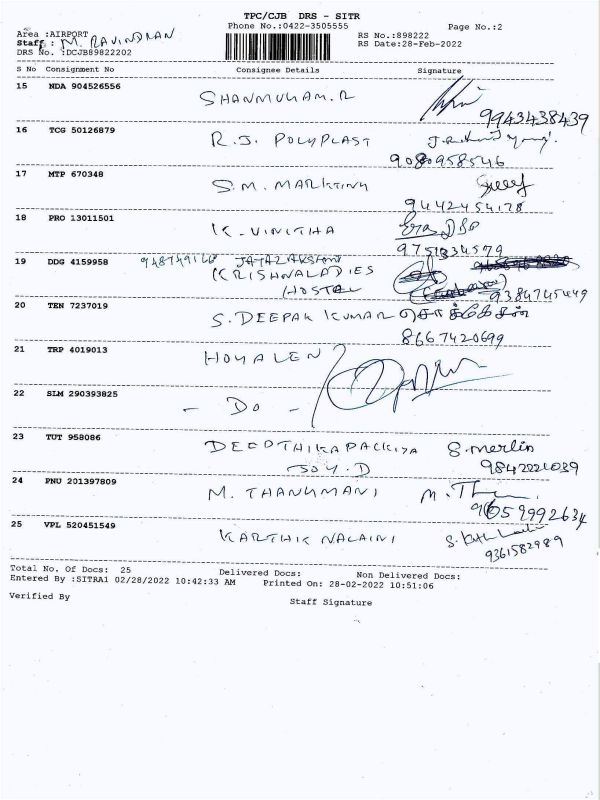 TPC/CJB DRS - SITR
Phone No.:0422-3505555
Page No.:2
Area :AIRPORT
Staff : M. RAVINDRAN
DRS No. :DCJB89822202
RS No.:898222
RS Date:28-Feb-2022
S No Consignment No Consignee Details Signature
15 NDA 904526556 SHANMUGAM.R
9943438439
16 TCG 50126879 R.J. POLYPLAST
9080958546
17 MTP 670348 S.M. MARKTING
9442454178
18 PRO 13011501 K. VINITHA
9751834579
19 DDG 4159958 JAYALAKSHMI
KRISHNALADIES
HOSTAL 9384745449
20 TEN 7237019 S. DEEPAK KUMAR
8667420699
21 TRP 4019013
22 SLM 290393825 - DO -
23 TUT 958086 S. merlin
JOY.D 9842221039
24 PNU 201397809 M. THANGMANI
9659992634
25 VPL 520451549 KARTHIK NALAINI
9361582989
Total No. Of Docs: 25 Delivered Docs: Non Delivered Docs:
Entered By :SITRA1 02/28/2022 10:42:33 AM Printed On: 28-02-2022 10:51:06
Verified By Staff Signature